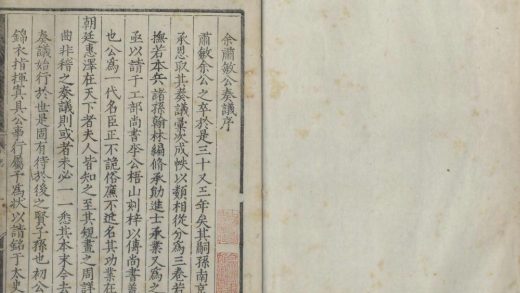 余肅敏公奏議序
肅敏余公之卒於是三十又三年矣其嗣孫南京
承恩取其奏議彙次成帙以類相從分為三卷若
撫若本兵諸孫翰林編脩承勛進士承業又為之
亟以請于工部尚書李公梧山刻梓以傳尚書善
也公為一代名臣正不詭俗廉不近名其功業在
朝廷惠澤在天下者夫人皆知之至其規畫之周詳
曲非稽之奏議則或者未必一一悉其本末今去
奏議始行於世是固有待於後之賢子孫也初公
錦衣指揮寘具公事行屬予為狀以請銘于太史